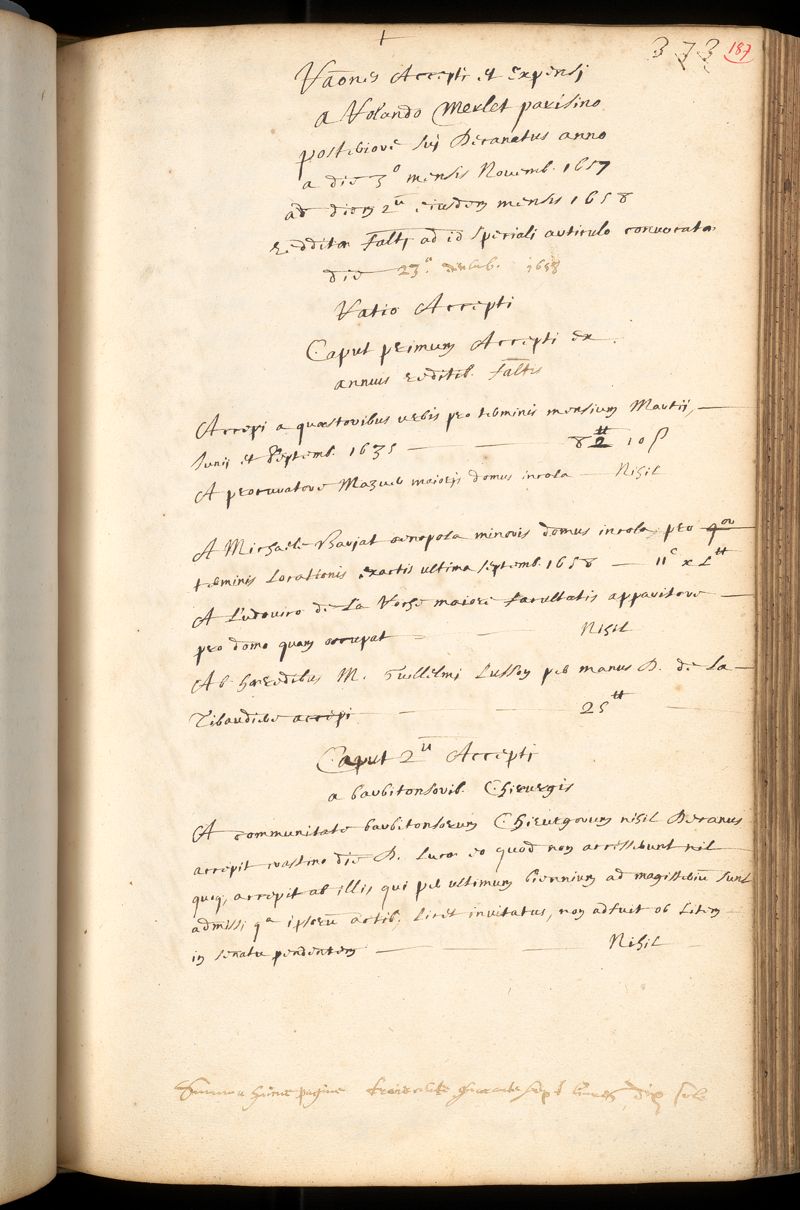 373 187
Raones Accepti et Expensi
a Rolando Merlet parisino
posteriore sui Decanatus anno
a die 3º mensis Novemb. 1657
ad diem 2ᵘ eiusdem mensis 1658
reddita Faltj ad id speciali articulo convocata
die 23º decemb. 1658
Ratio Accepti
Caput primum Accepti ex
annuis reditib. Faltis
Accepi a quæstoribus urbis pro terminis mensium Martij,
Junij et Septemb. 1635 — 82ᵗᵗ 10 ſ
A procuratore Mazuer maioris domus incola — Nihil
A Michaele Baujat œnopola minoris domus incola, pro qor
terminis Locationis exactis ultima septemb. 1658 — 11ᶜ x Lᵗᵗ
A Ludovico de La Roche maiore facultatis apparitore —
pro domo quam occupat — Nihil
Ab hæredibus M. Guillelmi Lusson per manus D. de La
Tibaudiere accepi — 25ᵗᵗ
Caput 2ᵘ Accepti
a barbitonsorib. Chirurgis
A communitate barbitonsorum Chirurgorum nihil Decanus
accepit crastino die D. Lucæ eo quod non accesserunt nil
quoq, accepit ab illis qui per ultimum biennium ad magisteriū sunt
admissi qᵃ ipsorū actib. licet invitatus, non adfuit ob Litem
in senatu pendentem — Nihil
Summa huius paginæ quarante sept livres dix sols